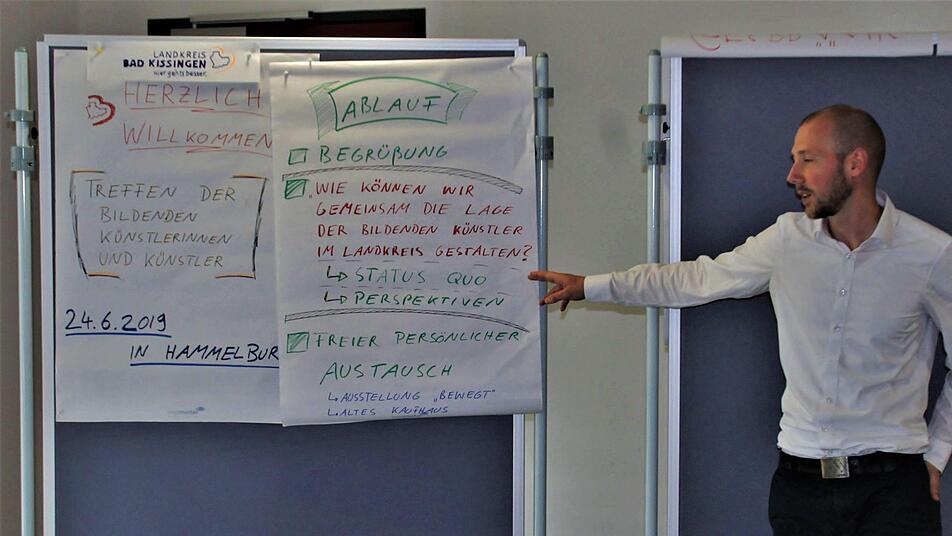 LANDKREIS
BAD KISSINGEN
Hier gehts besser.
HERZLICH
WILLKOMMEN
TREFFEN DER
BILDENDEN
KÜNSTLERINNEN
UND KÜNSTLER
24.6.2019
IN HAMMELBUR
ABLAUF
BEGRÜßUNG
„WIE KÖNNEN WIR
GEMEINSAM DIE LAGE
DER BILDENDEN KÜNSTLER
IM LANDKREIS GESTALTEN?
↳ STATUS QUO
↳ PERSPEKTIVEN
FREIER PERSÖNLICHER
AUSTAUSCH
↳ AUSSTELLUNG „BEWEGT"
↳ ALTES KAUFHAUS